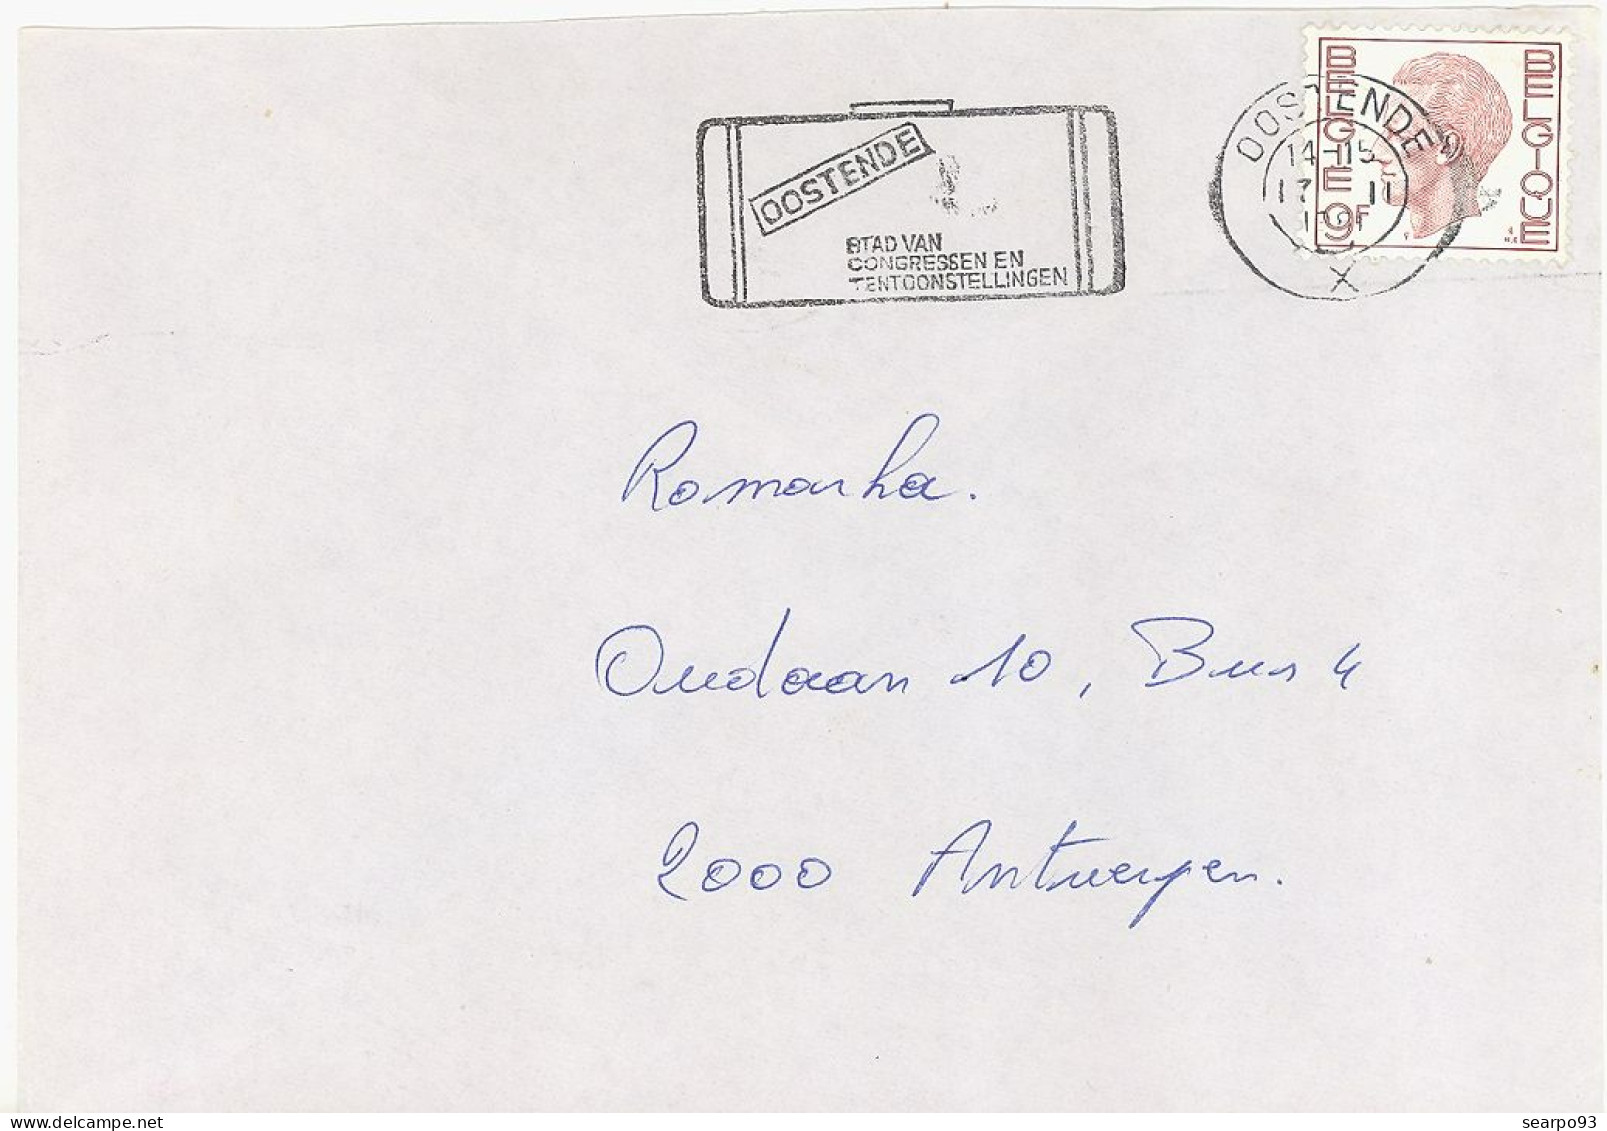 OOSTENDE
STAD VAN
CONGRESSEN EN
TENTOONSTELLINGEN
OOSTENDE
14-15
17 11
X
BELGIE 9F
BELGIQUE
Romarka.
Oudaan 10, Bus 4
2000 Antwerpen.
searpo93